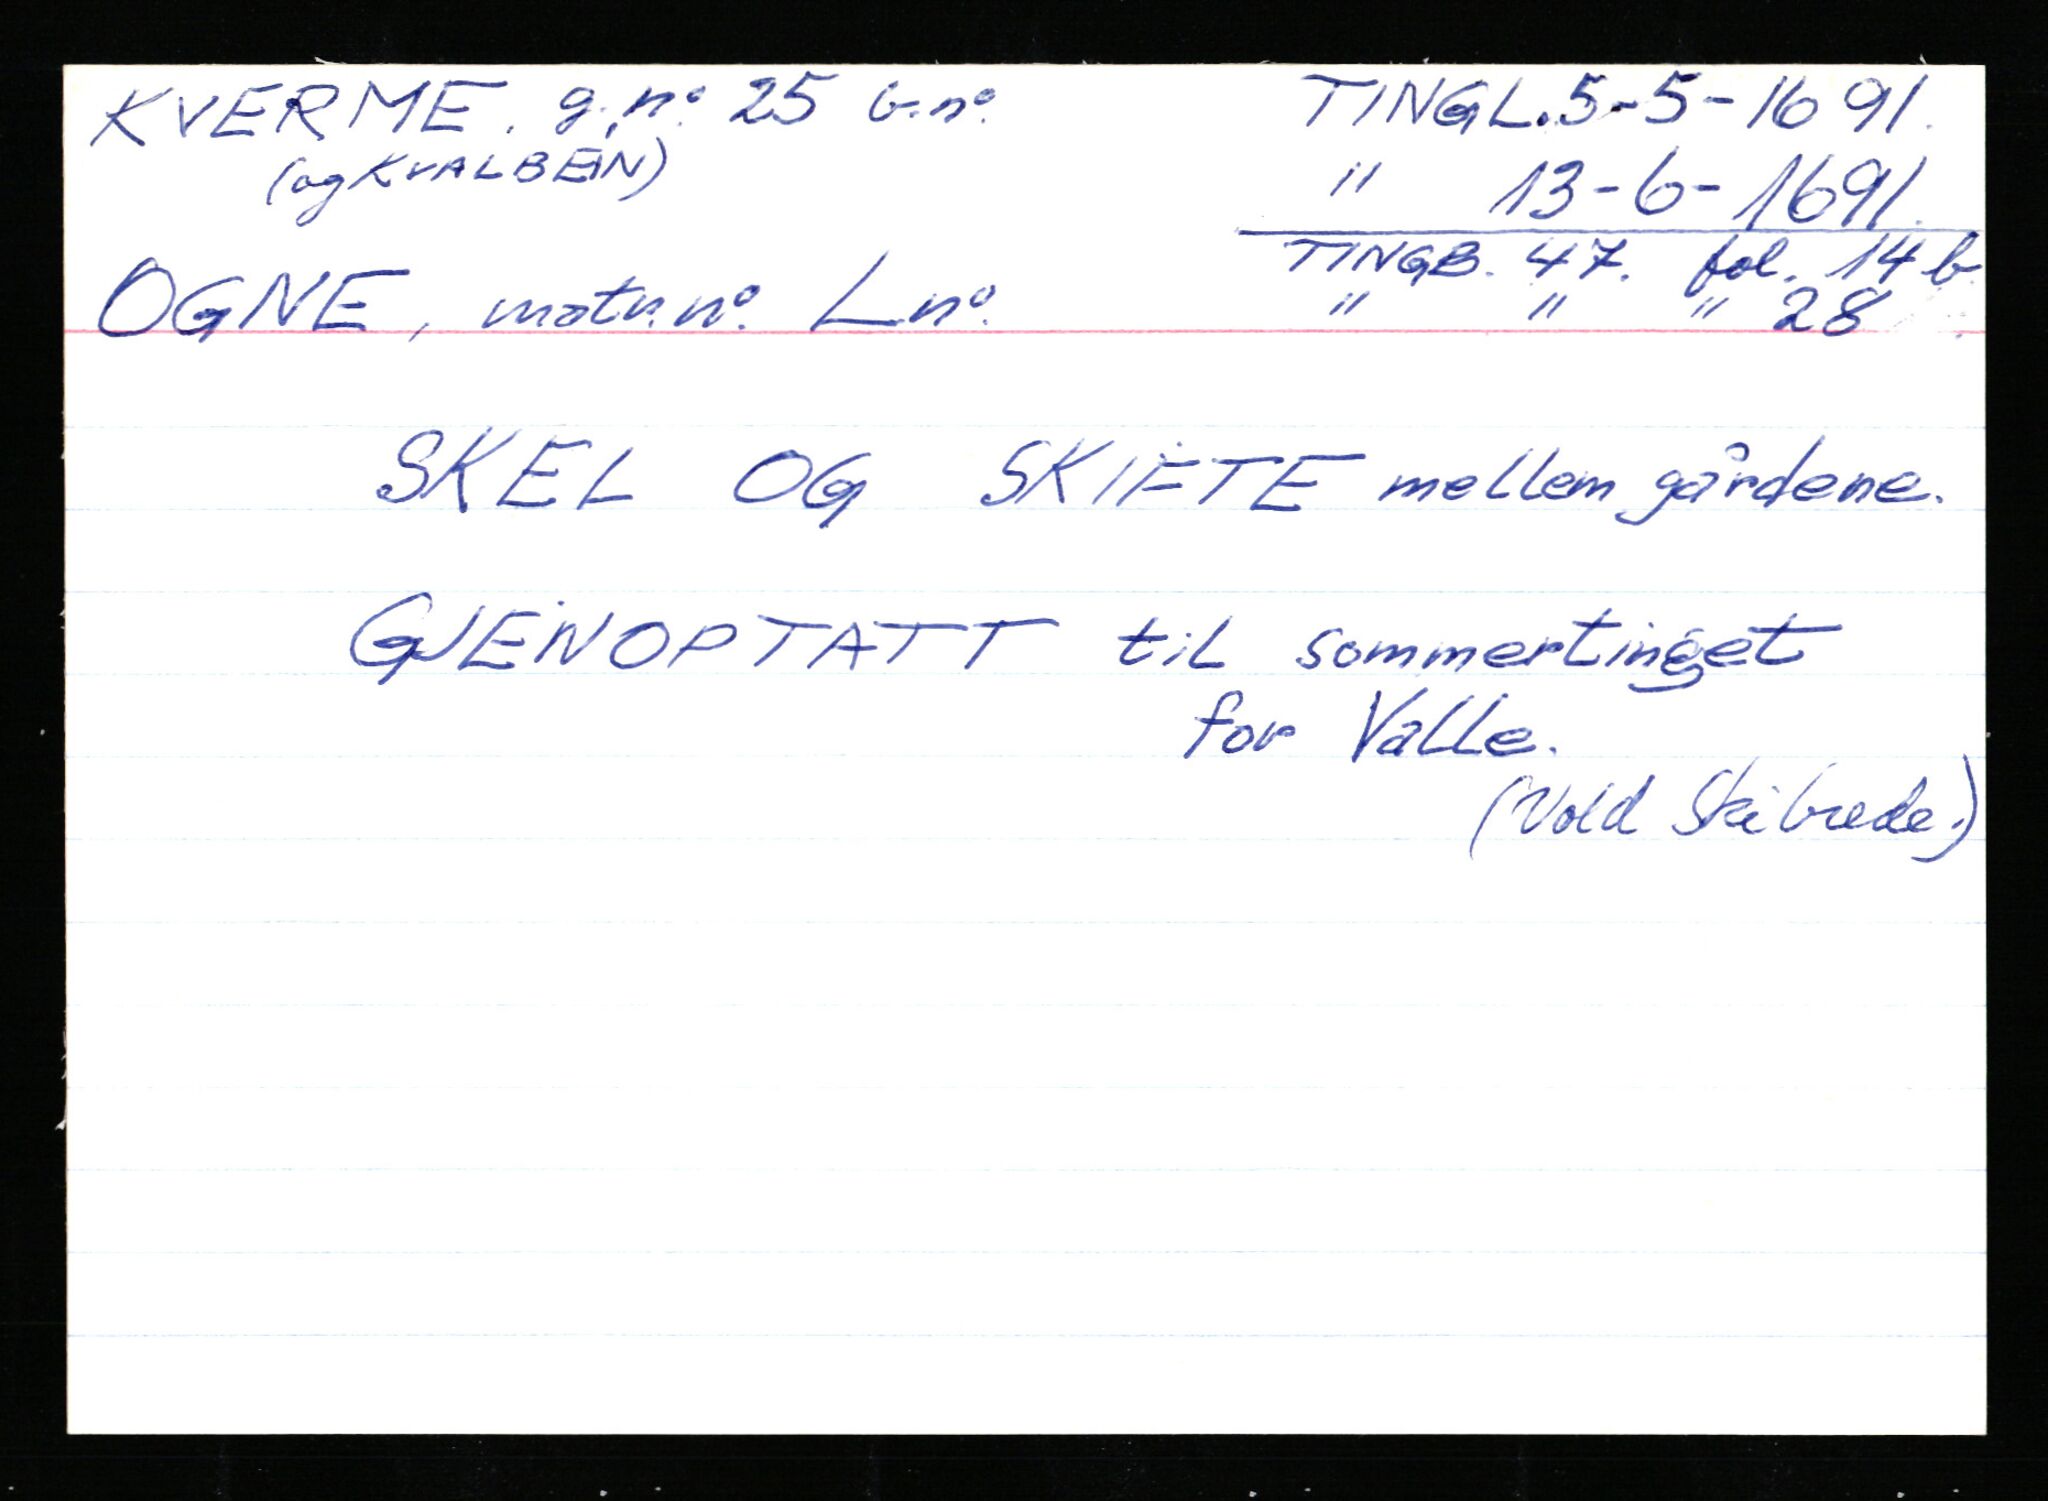 KVERME. g.nº 25 b.nº
(og KVALBEIN)
OGNE, matr.nº. Lnº.
TINGL. 5-5-1691.
" 13-6-1691.
TINGB. 47. fol. 14 b.
" " " 28
SKEL OG SKIFTE mellem gårdene.
GJENOPTATT til sommertinget
for Valle.
(Vold Skibrede.)